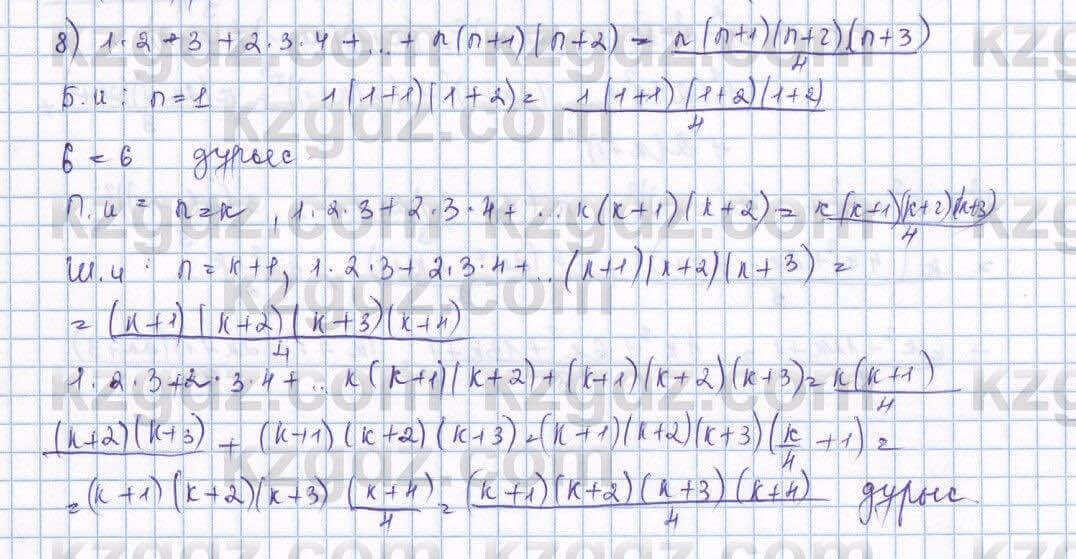 8) 1·2·3+2·3·4+...+n(n+1)(n+2) = n(n+1)(n+2)(n+3)/4
Б.и: n=1 1(1+1)(1+2) = 1(1+1)(1+2)(1+2)/4
6 = 6 дұрыс
П.и = n=k, 1·2·3+2·3·4+...k(k+1)(k+2) = k(k+1)(k+2)(k+3)/4
Ш.и: n=k+1, 1·2·3+2·3·4+...(k+1)(k+2)(k+3) =
= (k+1)(k+2)(k+3)(k+4)/4
1·2·3+2·3·4+...k(k+1)(k+2)+(k+1)(k+2)(k+3) = k(k+1)/4
(k+2)(k+3) + (k+1)(k+2)(k+3) = (k+1)(k+2)(k+3)(k/4+1) =
= (k+1)(k+2)(k+3)(k+4)/4 = (k+1)(k+2)(k+3)(k+4)/4 дұрыс
kzgdz.com